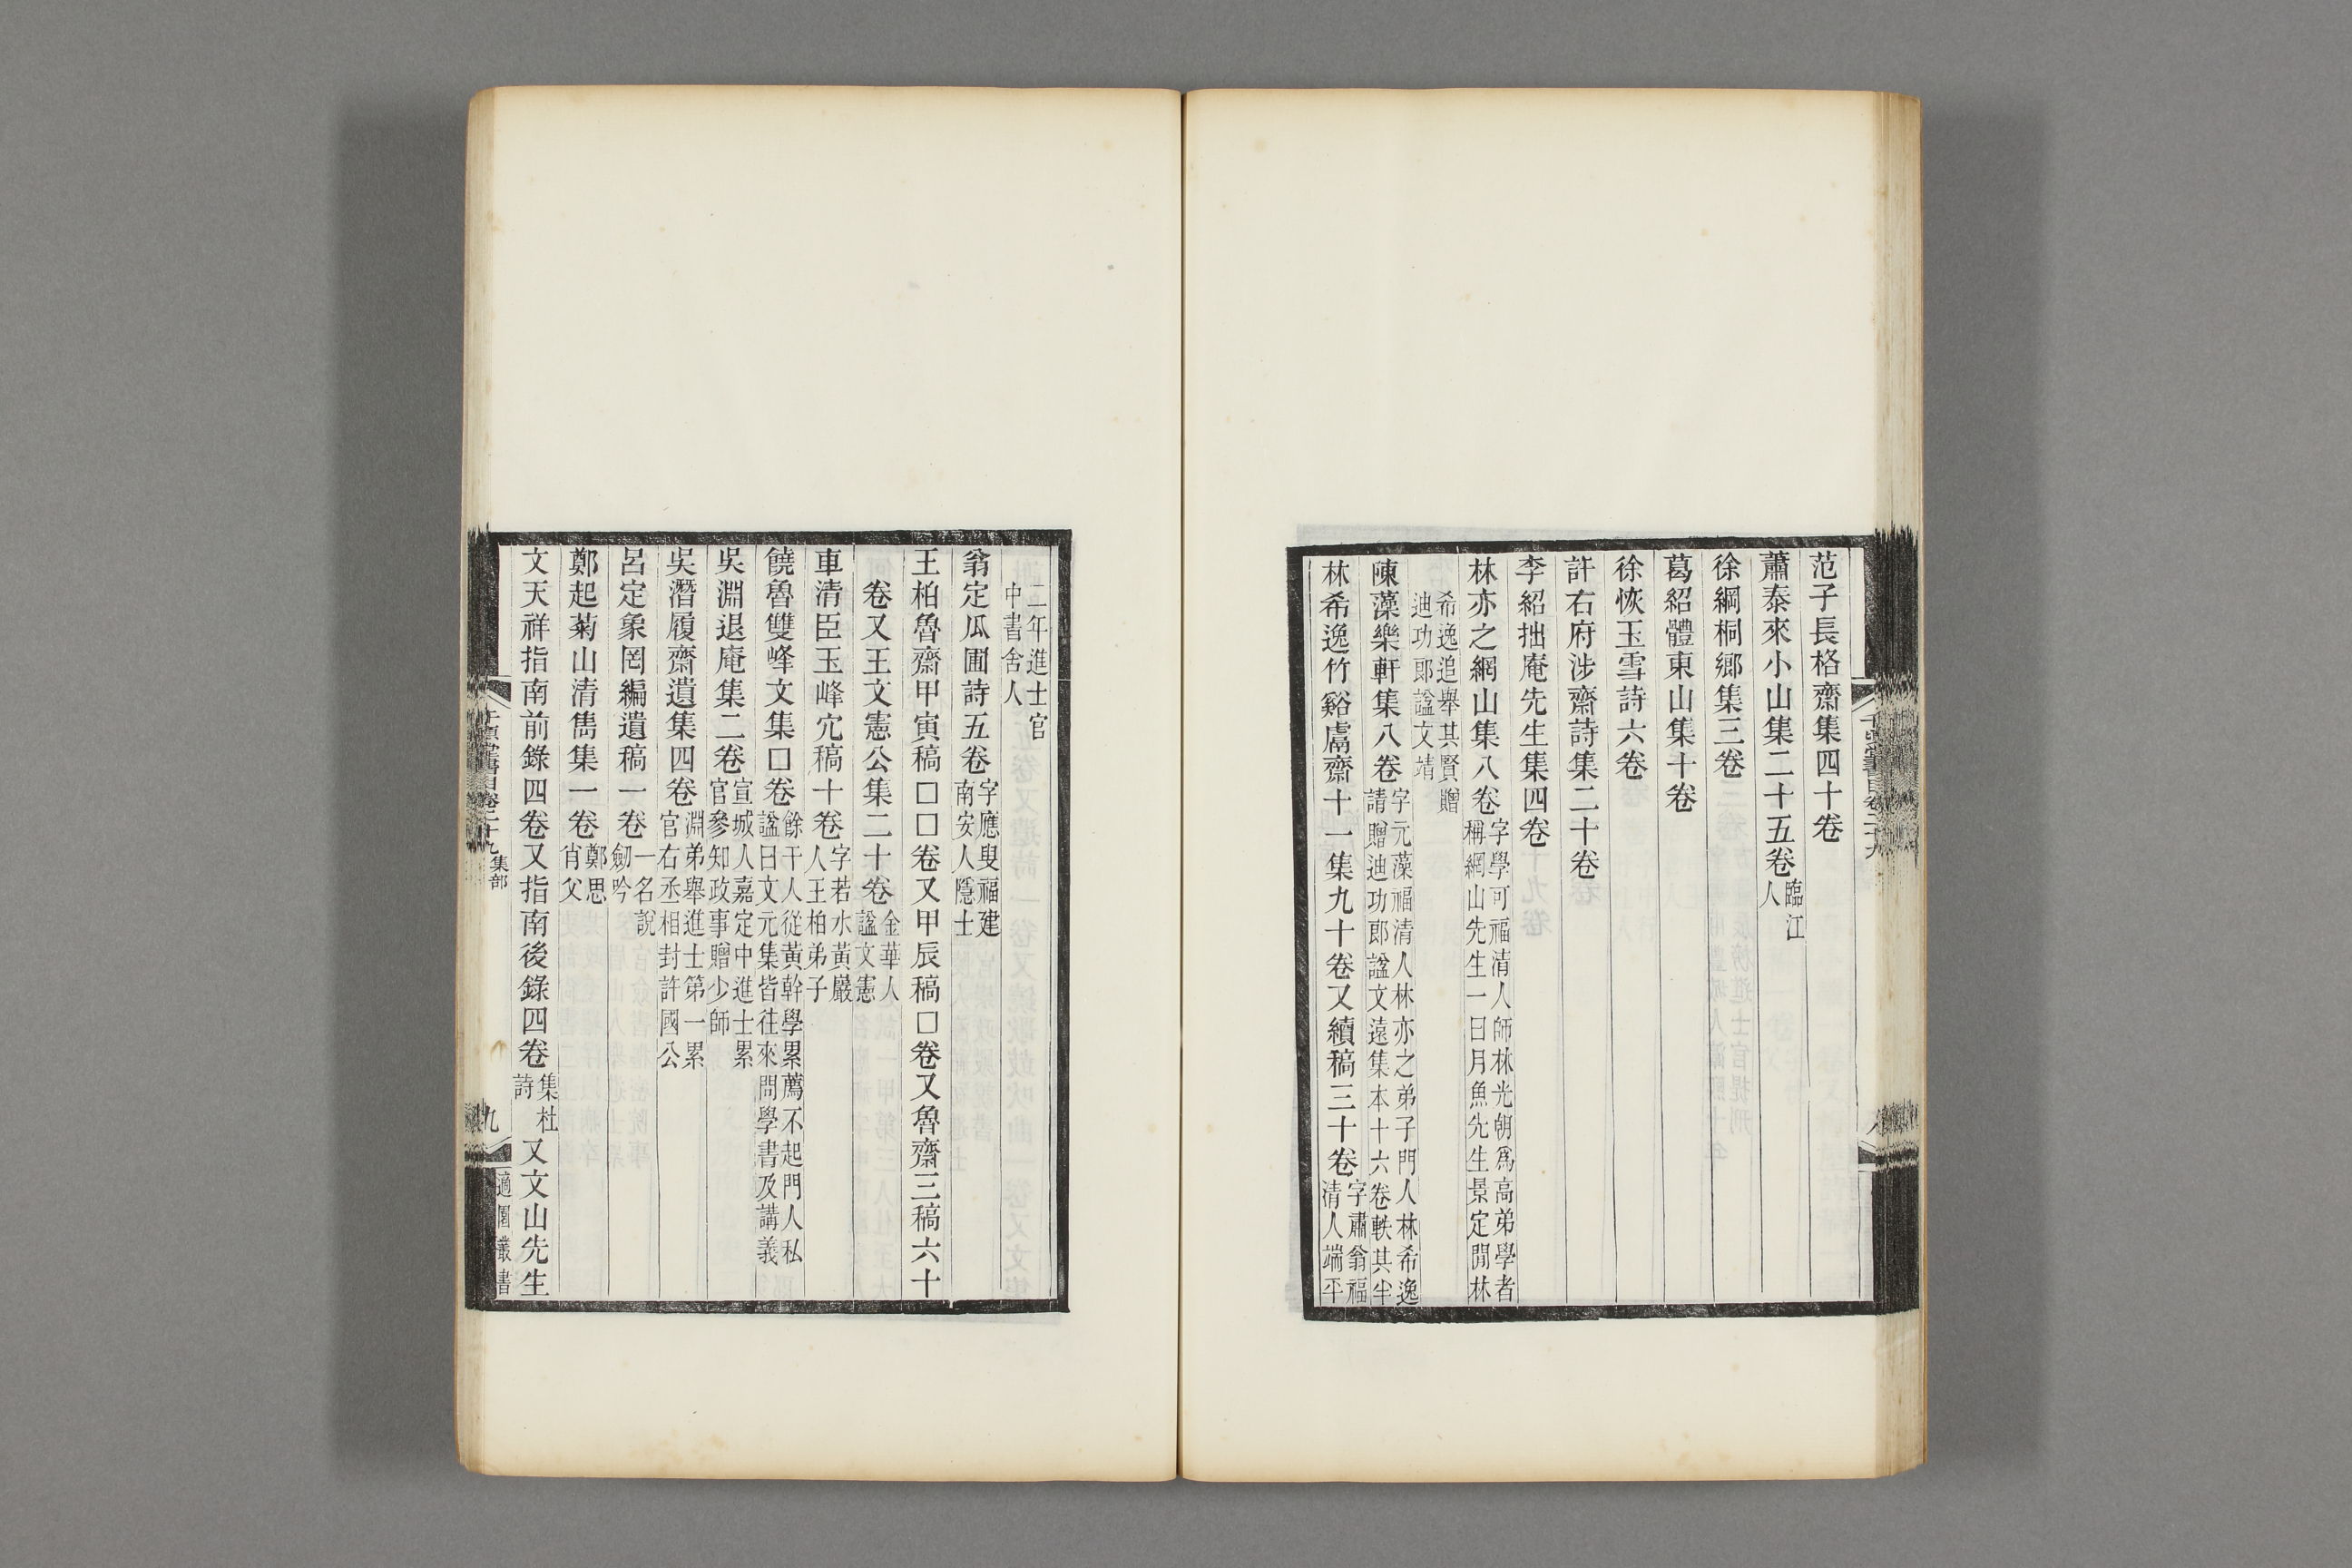 范子長格齋集四十卷
蕭泰來小山集二十五卷臨江人
徐綱桐鄉集三卷
葛紹體東山集十卷
徐恢玉雪詩六卷
許右府涉齋詩集二十卷
李紹拙庵先生集四卷
林亦之網山集八卷字學可福清人師林光朝爲高弟學者稱網山先生一曰月魚先生景定閒林
希逸追舉其賢贈迪功郎諡文靖
陳藻樂軒集八卷字元藻福清人林亦之弟子門人林希逸請贈迪功郎諡文遠集本十六卷軼其半
林希逸竹谿鬳齋十一集九十卷又續稿三十卷字肅翁福清人端平
二年進士官中書舍人
翁定瓜圃詩五卷字應叟福建南安人隱士
王柏魯齋甲寅稿□□卷又甲辰稿□卷又魯齋三稿六十
卷又王文憲公集二十卷金華人諡文憲
車清臣玉峰宂稿十卷字若水黃巖人王柏弟子
饒魯雙峰文集□卷餘干人從黃幹學累薦不起門人私諡曰文元集皆往來問學書及講義
吳淵退庵集二卷宣城人嘉定中進士累官參知政事贈少師
吳潛履齋遺集四卷淵弟舉進士第一累官右丞相封許國公
呂定象罔編遺稿一卷一名說劒吟
鄭起菊山清雋集一卷鄭思肖父
文天祥指南前錄四卷又指南後錄四卷集杜詩又文山先生
千頃堂書目卷二十九 集部
九
適園叢書